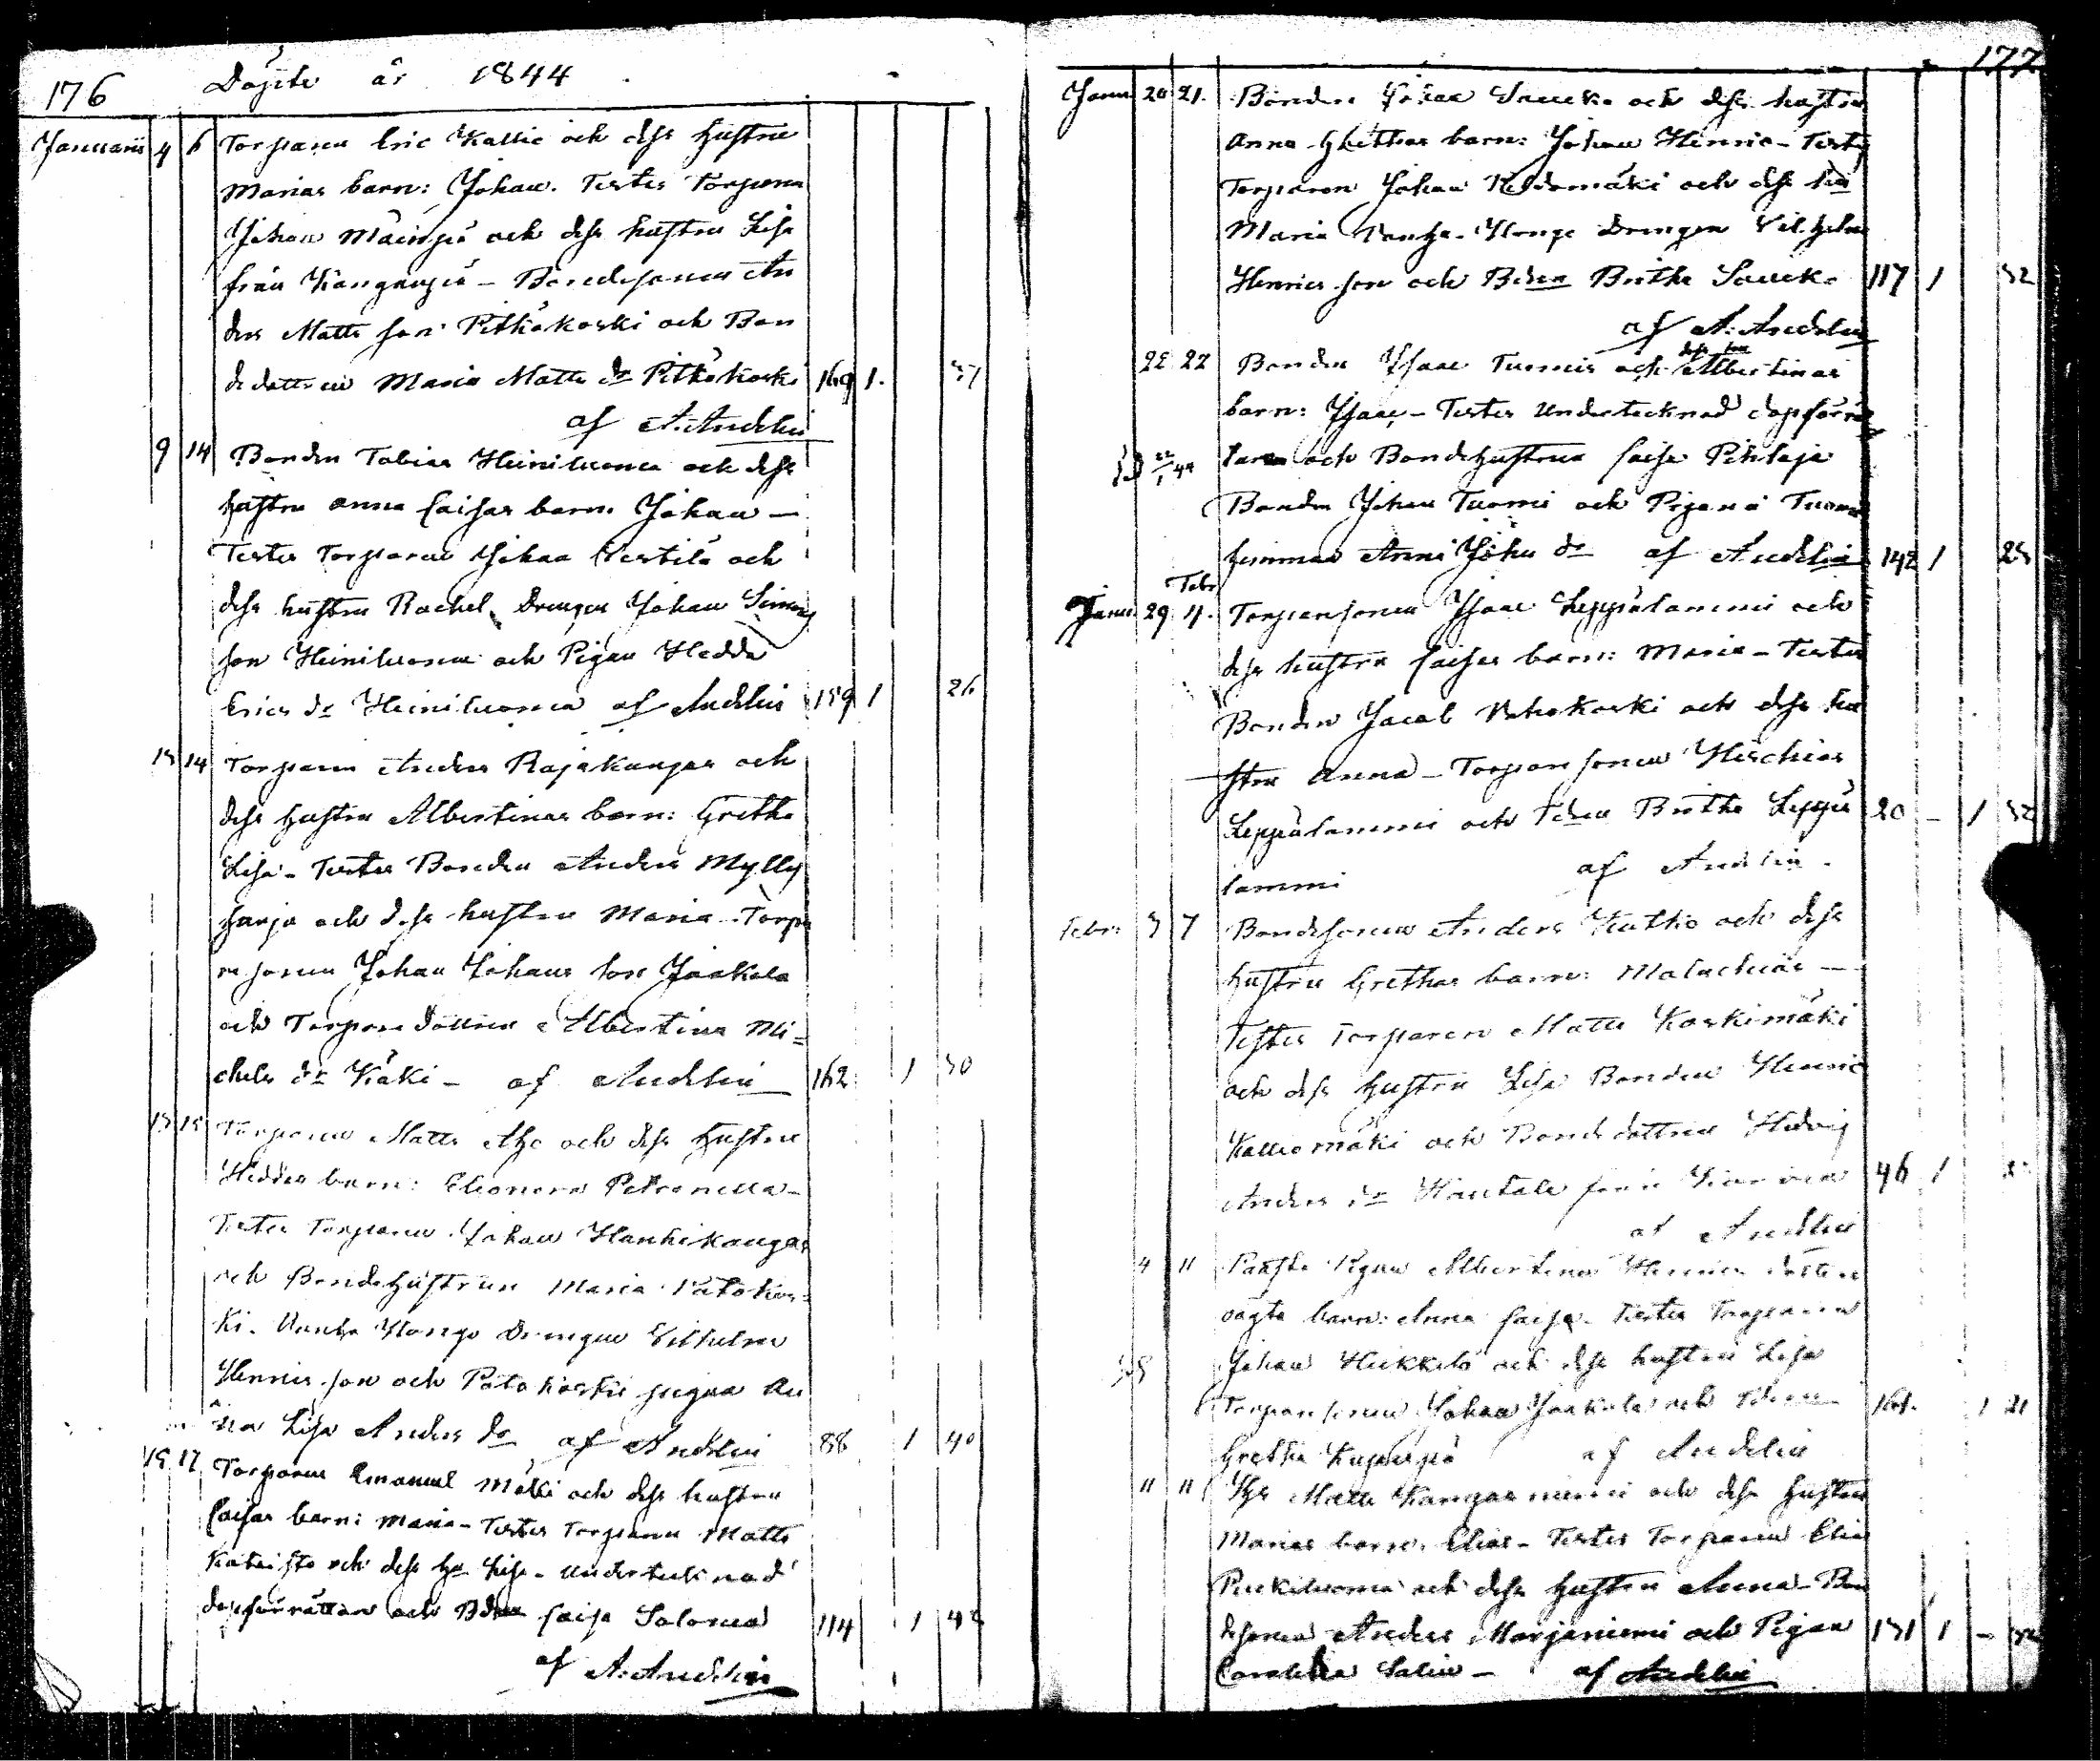 176 Döpte år 1844
Januarii 4 6 Torparen Eric Kallio och dess hustru
Marias barn: Johan. Testes Torparen
Johan Mäenpää och dess hustru Lisa
från Kanganpää - Bondesonen An
ders Matts son Pitkäkoski och Bon
dedottren Maria Matts dr Pitkäkoski 169 1. 37
af A. Andelin
9 14 Bonden Tobias Heiniluoma och dess
hustru Anna Caisas barn: Johan -
Testes Torparen Johan Perttilä och
dess hustru Rachel, Drengen Johan Simons
son Heiniluoma och Pigan Hedda
Erics dr Heiniluoma af Andelin 159 1 26
13 14 Torparen Anders Rajakangas och
dess hustru Albertinas barn: Gretha
Lisa - Testes Bonden Anders Mylly
harju och dess hustru Maria - Torpa
resonen Johan Johans son Jaakola
och Torparedottren Albertina Mi=
chels dr Käki - af Andelin 162 1 30
13 15 Torparen Matts Aho och dess hustru
Heddas barn: Eleonora Petronella -
Testes Torparen Johan Hanhikangas
och Bondehustrun Maria Patokos=
ki. Vanha Hongo Drengen Vilhelm
Henrics son och Patokoski pigan An
na Lisa Anders dr af Andelin 88 1 40
15 17 Torparen Emanuel Mäki och dess hustru
Caisas barn: Maria - Testes Torparen Matts
Kataisto och dess hu Lisa - Undertecknad
dopförrättare och Bdrn Caisa Salomea 114 1 42
af A. Andelin
177
Janu 20 21. Bonden Johan Saucko och dess hustru
Anna Grethas barn: Johan Henric - Testes
Torparen Johan Keldomäki och dess hu
Maria Vanha-Hongo Drengen Vilhelm
Henrics son och Bdren Britha Saucko 117 1 32
af A. Andelin
22 22 Bonden Isaac Tuomis och dess hu Albertinas
barn: Isaac - Testes Undertecknad dopförrät
taren och Bondehustrun Caisa Pihlaja
Bonden Johan Tuomi och Pigan å Tuomi
hemman Anna Joha dr af Andelin 142 1 25
Janu 29 Febr 4. Torparesonen Isaac Leppälammi och
dess hustru Caisas barn: Maria - Testes
Bonden Jacob Vehokoski och dess hu
stru Anna - Torparesonen Hischias
Leppälammi och Tdren Britha Leppä 20 - 1 32
lammi af Andelin.
Febr: 3 7 Bondesonen Anders Kutko och dess
hustru Grethas barn: Malachias -
Testes Torparen Matts Koskimäki
och dess hustru Lisa Bonden Henric
Kalliomäki och Bondedottren Hedvig
Anders dr Hautala från 46 1
af Andelin
4 11 Pigan Albertina Henrics dotters
oägta barn: Anna Caisa - Testes Torparen
Johan Heikkilä och dess hustru Lisa
Torparesonen Johan Jaakola och 161. 1 21
Gretha af Andelin
11 11 Matts Kangasniemi och dess hustru
Marias barn: Elias - Testes Torparen Elias
Peuraluoma och dess hustru Anna - Bon
desonen Anders Marjaniemi och Pigan 131 1 - 32
Carolina Salin - af Andelin